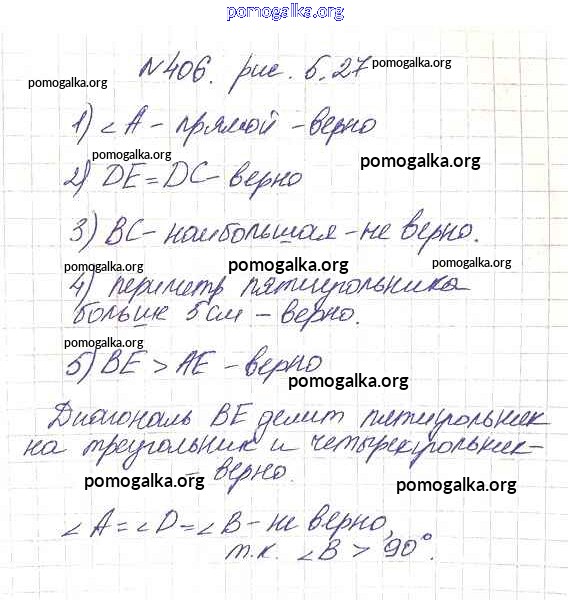 pomogalka.org
№406. рис. 5.27
pomogalka.org
pomogalka.org
1) ∠A - прямой - верно
pomogalka.org
pomogalka.org
2) DE = DC - верно
3) BC - наибольшая - не верно.
pomogalka.org
pomogalka.org
pomogalka.org
4) периметр пятиугольника
больше 5 см - верно.
pomogalka.org
5) BE > AE - верно
pomogalka.org
Диагональ BE делит пятиугольник
на треугольник и четырехугольник -
- верно.
pomogalka.org
pomogalka.org
∠A = ∠D = ∠B - не верно,
т.к. ∠B > 90°.